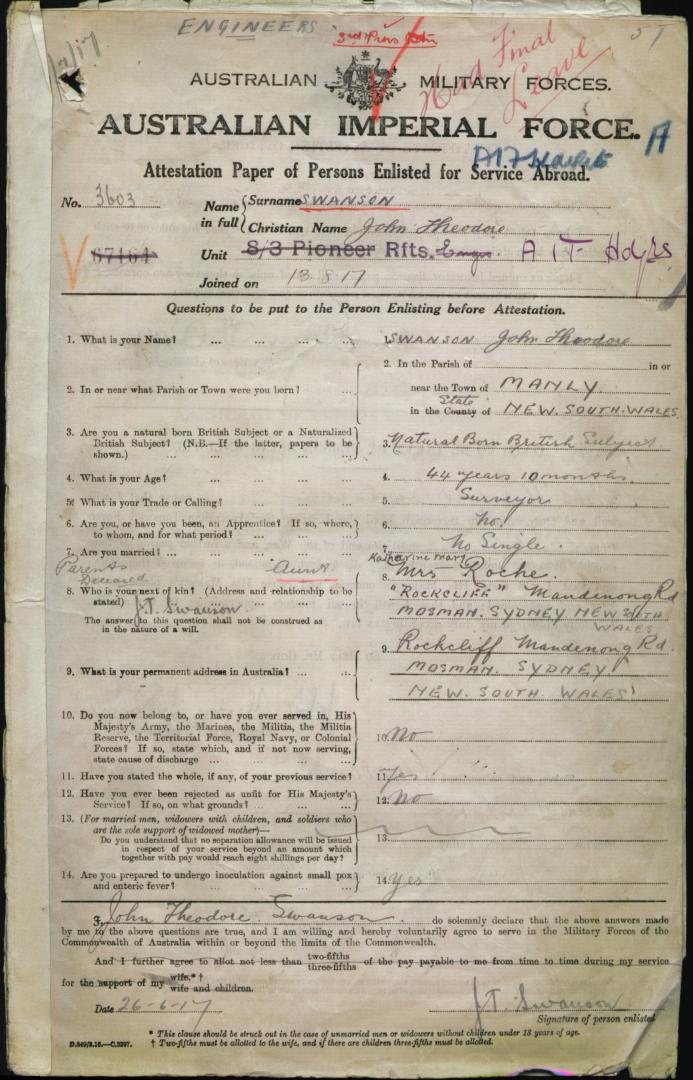 ENGINEERS
Had Final
Leave
AUSTRALIAN MILITARY FORCES.
AUSTRALIAN IMPERIAL FORCE. A
Attestation Paper of Persons Enlisted for Service Abroad.
No. 3603 Name in full { Surname SWANSON
Christian Name John Theodore
67164 Unit 8/3 Pioneer Rfts. Engrs. A I F Hdqrs
Joined on 13.8.17
Questions to be put to the Person Enlisting before Attestation.
1. What is your Name? ... ... ... ... 1. SWANSON John Theodore
2. In or near what Parish or Town were you born? ... 2. In the Parish of in or
near the Town of MANLY
State
in the County of NEW. SOUTH. WALES
3. Are you a natural born British Subject or a Naturalized
British Subject? (N.B.—If the latter, papers to be
shown.) ... 3. Natural Born British Subject
4. What is your Age? ... 4. 44 years 10 months.
5. What is your Trade or Calling? ... 5. Surveyor
6. Are you, or have you been, an Apprentice? If so, where,
to whom, and for what period? ... 6. No.
7. Are you married? ... 7. No Single.
Parents Deceased Aunt.
8. Who is your next of kin? (Address and relationship to be
stated) J.T. Swanson
The answer to this question shall not be construed as
in the nature of a will.
Katharine Mary
8. Mrs Roche.
"ROCKCLIFF" Mandenong Rd
MOSMAN. SYDNEY NEW SOUTH
WALES
9. What is your permanent address in Australia? ... 9. Rockcliff Mandenong Rd.
MOSMAN. SYDNEY
NEW. SOUTH. WALES
10. Do you now belong to, or have you ever served in, His
Majesty's Army, the Marines, the Militia, the Militia
Reserve, the Territorial Force, Royal Navy, or Colonial
Forces? If so, state which, and if not now serving,
state cause of discharge ... 10. No
11. Have you stated the whole, if any, of your previous service? 11. Yes
12. Have you ever been rejected as unfit for His Majesty's
Service? If so, on what grounds? ... 12. No
13. (For married men, widowers with children, and soldiers who
are the sole support of widowed mother)—
Do you understand that no separation allowance will be issued
in respect of your service beyond an amount which
together with pay would reach eight shillings per day? 13.
14. Are you prepared to undergo inoculation against small pox
and enteric fever? ... 14. Yes
I, John Theodore Swanson do solemnly declare that the above answers made
by me to the above questions are true, and I am willing and hereby voluntarily agree to serve in the Military Forces of the
Commonwealth of Australia within or beyond the limits of the Commonwealth.
And I further agree to allot not less than two-fifths three-fifths of the pay payable to me from time to time during my service
for the support of my wife.*† wife and children.
Date 26-6-17 J.T. Swanson
Signature of person enlisted
* This clause should be struck out in the case of unmarried men or widowers without children under 18 years of age.
† Two-fifths must be allotted to the wife, and if there are children three-fifths must be allotted.
D.349/3.16.—C.3297.